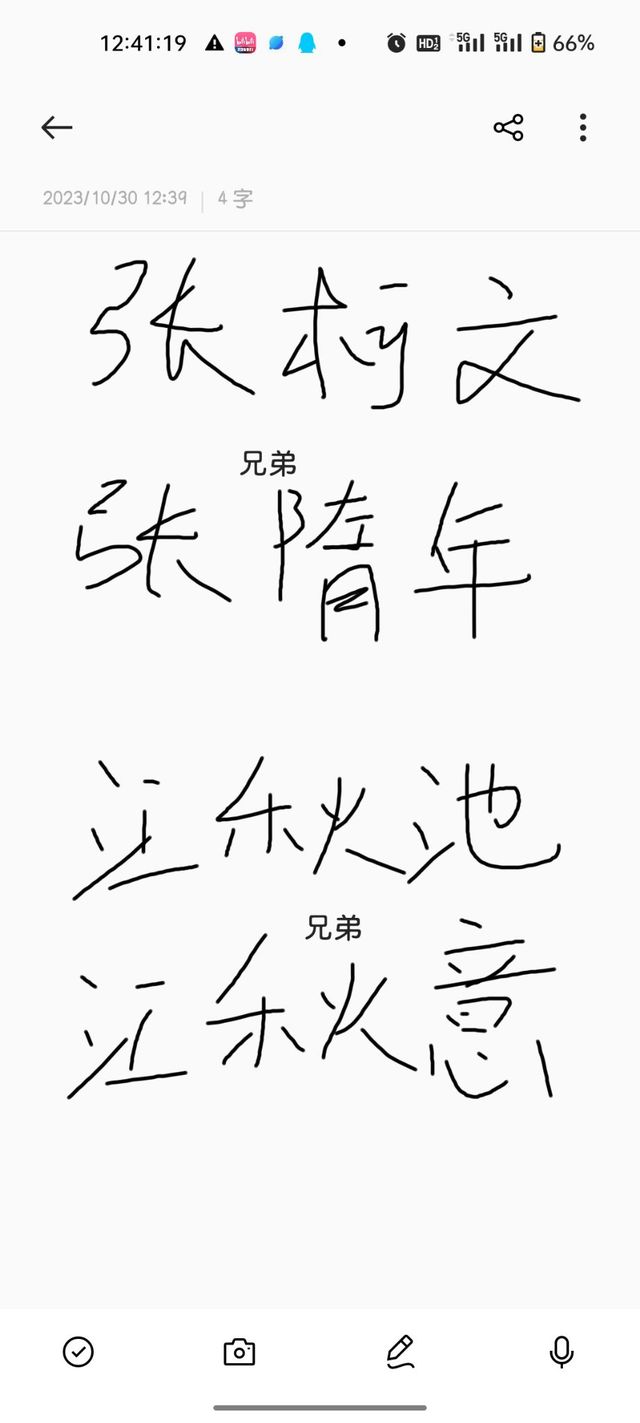 12:41:19 HD 5G 5G 66%
2023/10/30 12:39 | 4 字
张柯文
兄弟
张隋年
江秋池
兄弟
江秋意